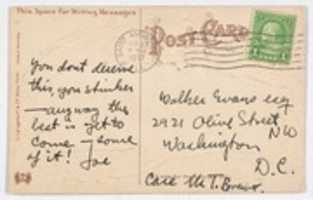 This Space For Writing Messages
POST CARD
You don't deserve
this, you stinker
—anyway the
best is yet to
come — some
of it! Joe
Walker Evans esq
2921 Olive Street NW
Washington
D.C.
Care